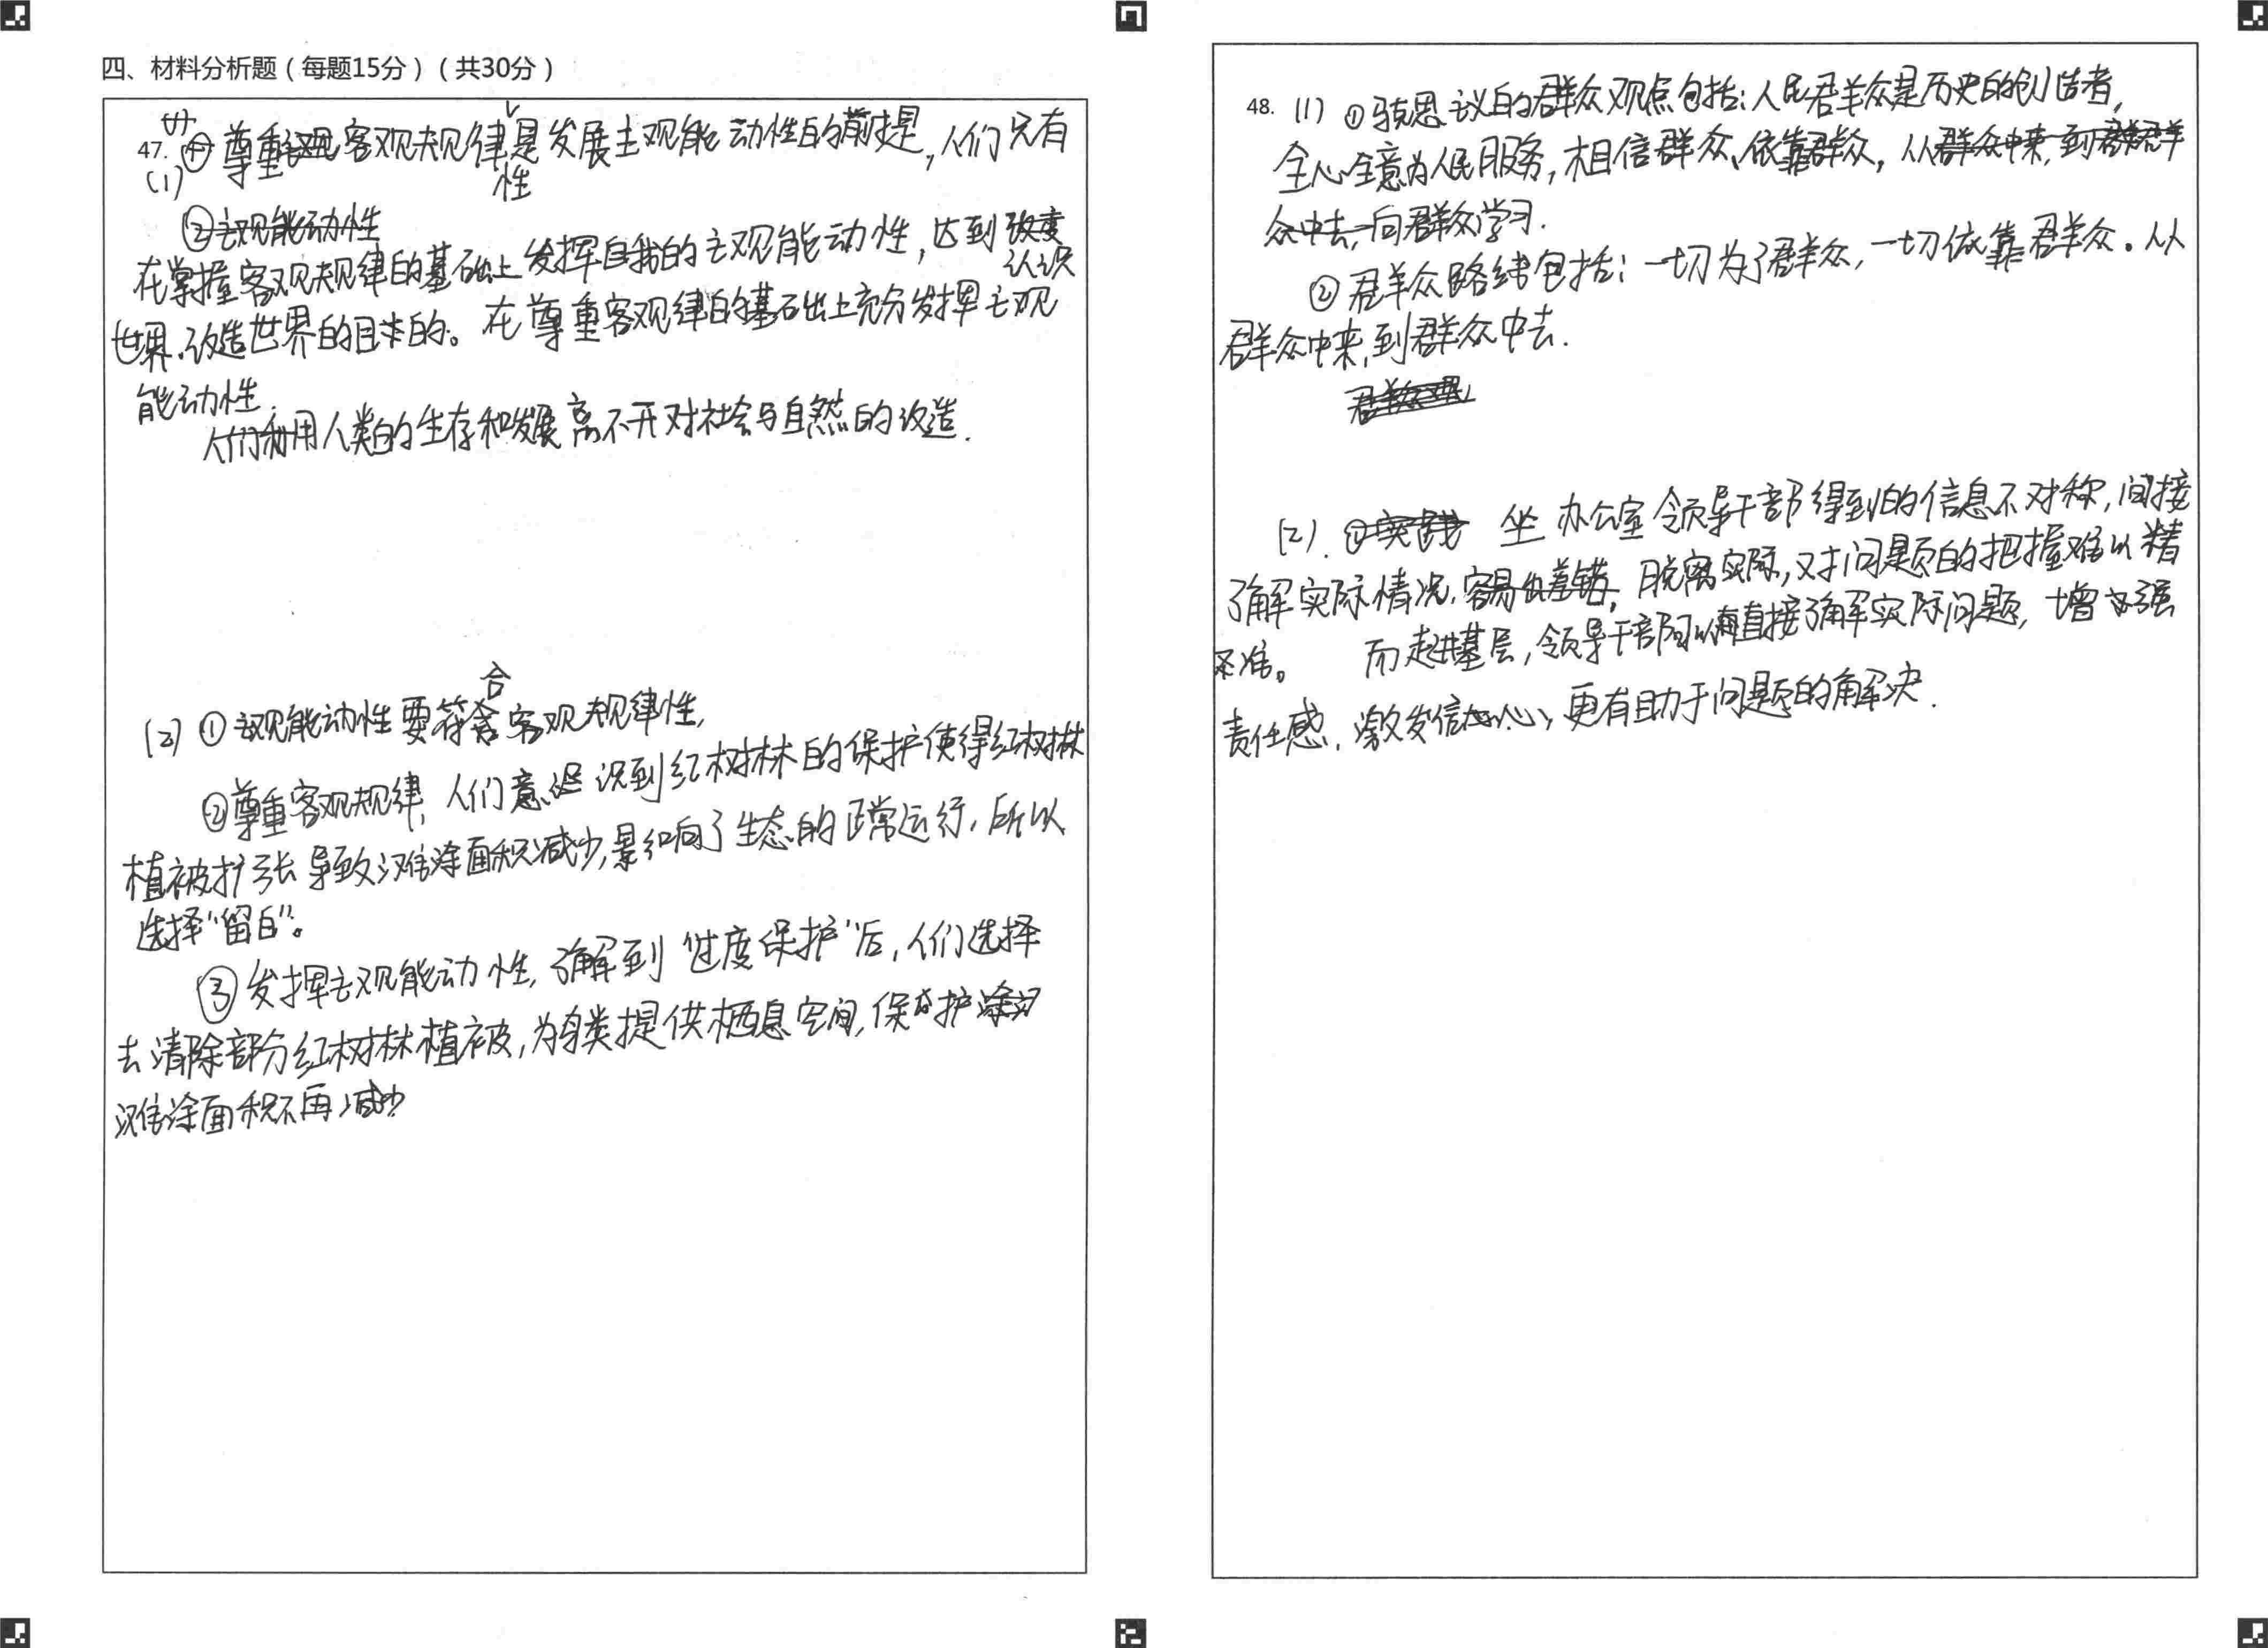 四、材料分析题（每题15分）（共30分）
47.
(1) 尊重客观规律性是发展主观能动性的前提，人们只有
在掌握客观规律的基础上发挥自我的主观能动性，达到认识
世界、改造世界的目的。在尊重客观律的基础上充分发挥主观
能动性.
人类的生存和发展离不开对社会与自然的改造.
(2) ①主观能动性要符合客观规律性,
②尊重客观规律, 人们意识到红树林的保护使得红树林
植被扩张导致滩涂面积减少,影响了生态的正常运行，所以
选择“留白”。
③发挥主观能动性, 了解到“过度保护”后, 人们选择
去清除部分红树林植被,为鸟类提供栖息空间,保护
滩涂面积不再减少
48. (1) ①马克思主义的群众观点包括: 人民群众是历史的创造者,
全心全意为人民服务, 相信群众、依靠群众,
向群众学习.
②群众路线包括: 一切为了群众, 一切依靠群众。从
群众中来,到群众中去.
(2). 坐办公室领导干部得到的信息不对称, 间接
了解实际情况, 脱离实际, 对问题的把握难以精
准。 而赴基层, 领导干部可以直接了解实际问题, 增强
责任感, 激发信心, 更有助于问题的解决.